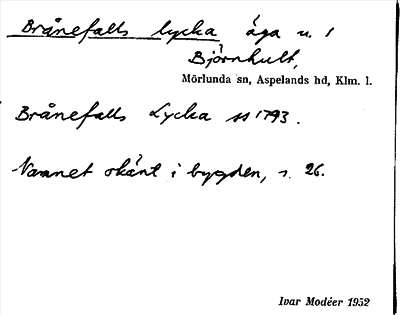 Brånefalls lycka äga u. 1
Björnhult,
Mörlunda sn, Aspelands hd, Klm. l.
Brånefalls Lycka ss 1793.
Namnet okänt i bygden, s. 26.
Ivar Modéer 1952